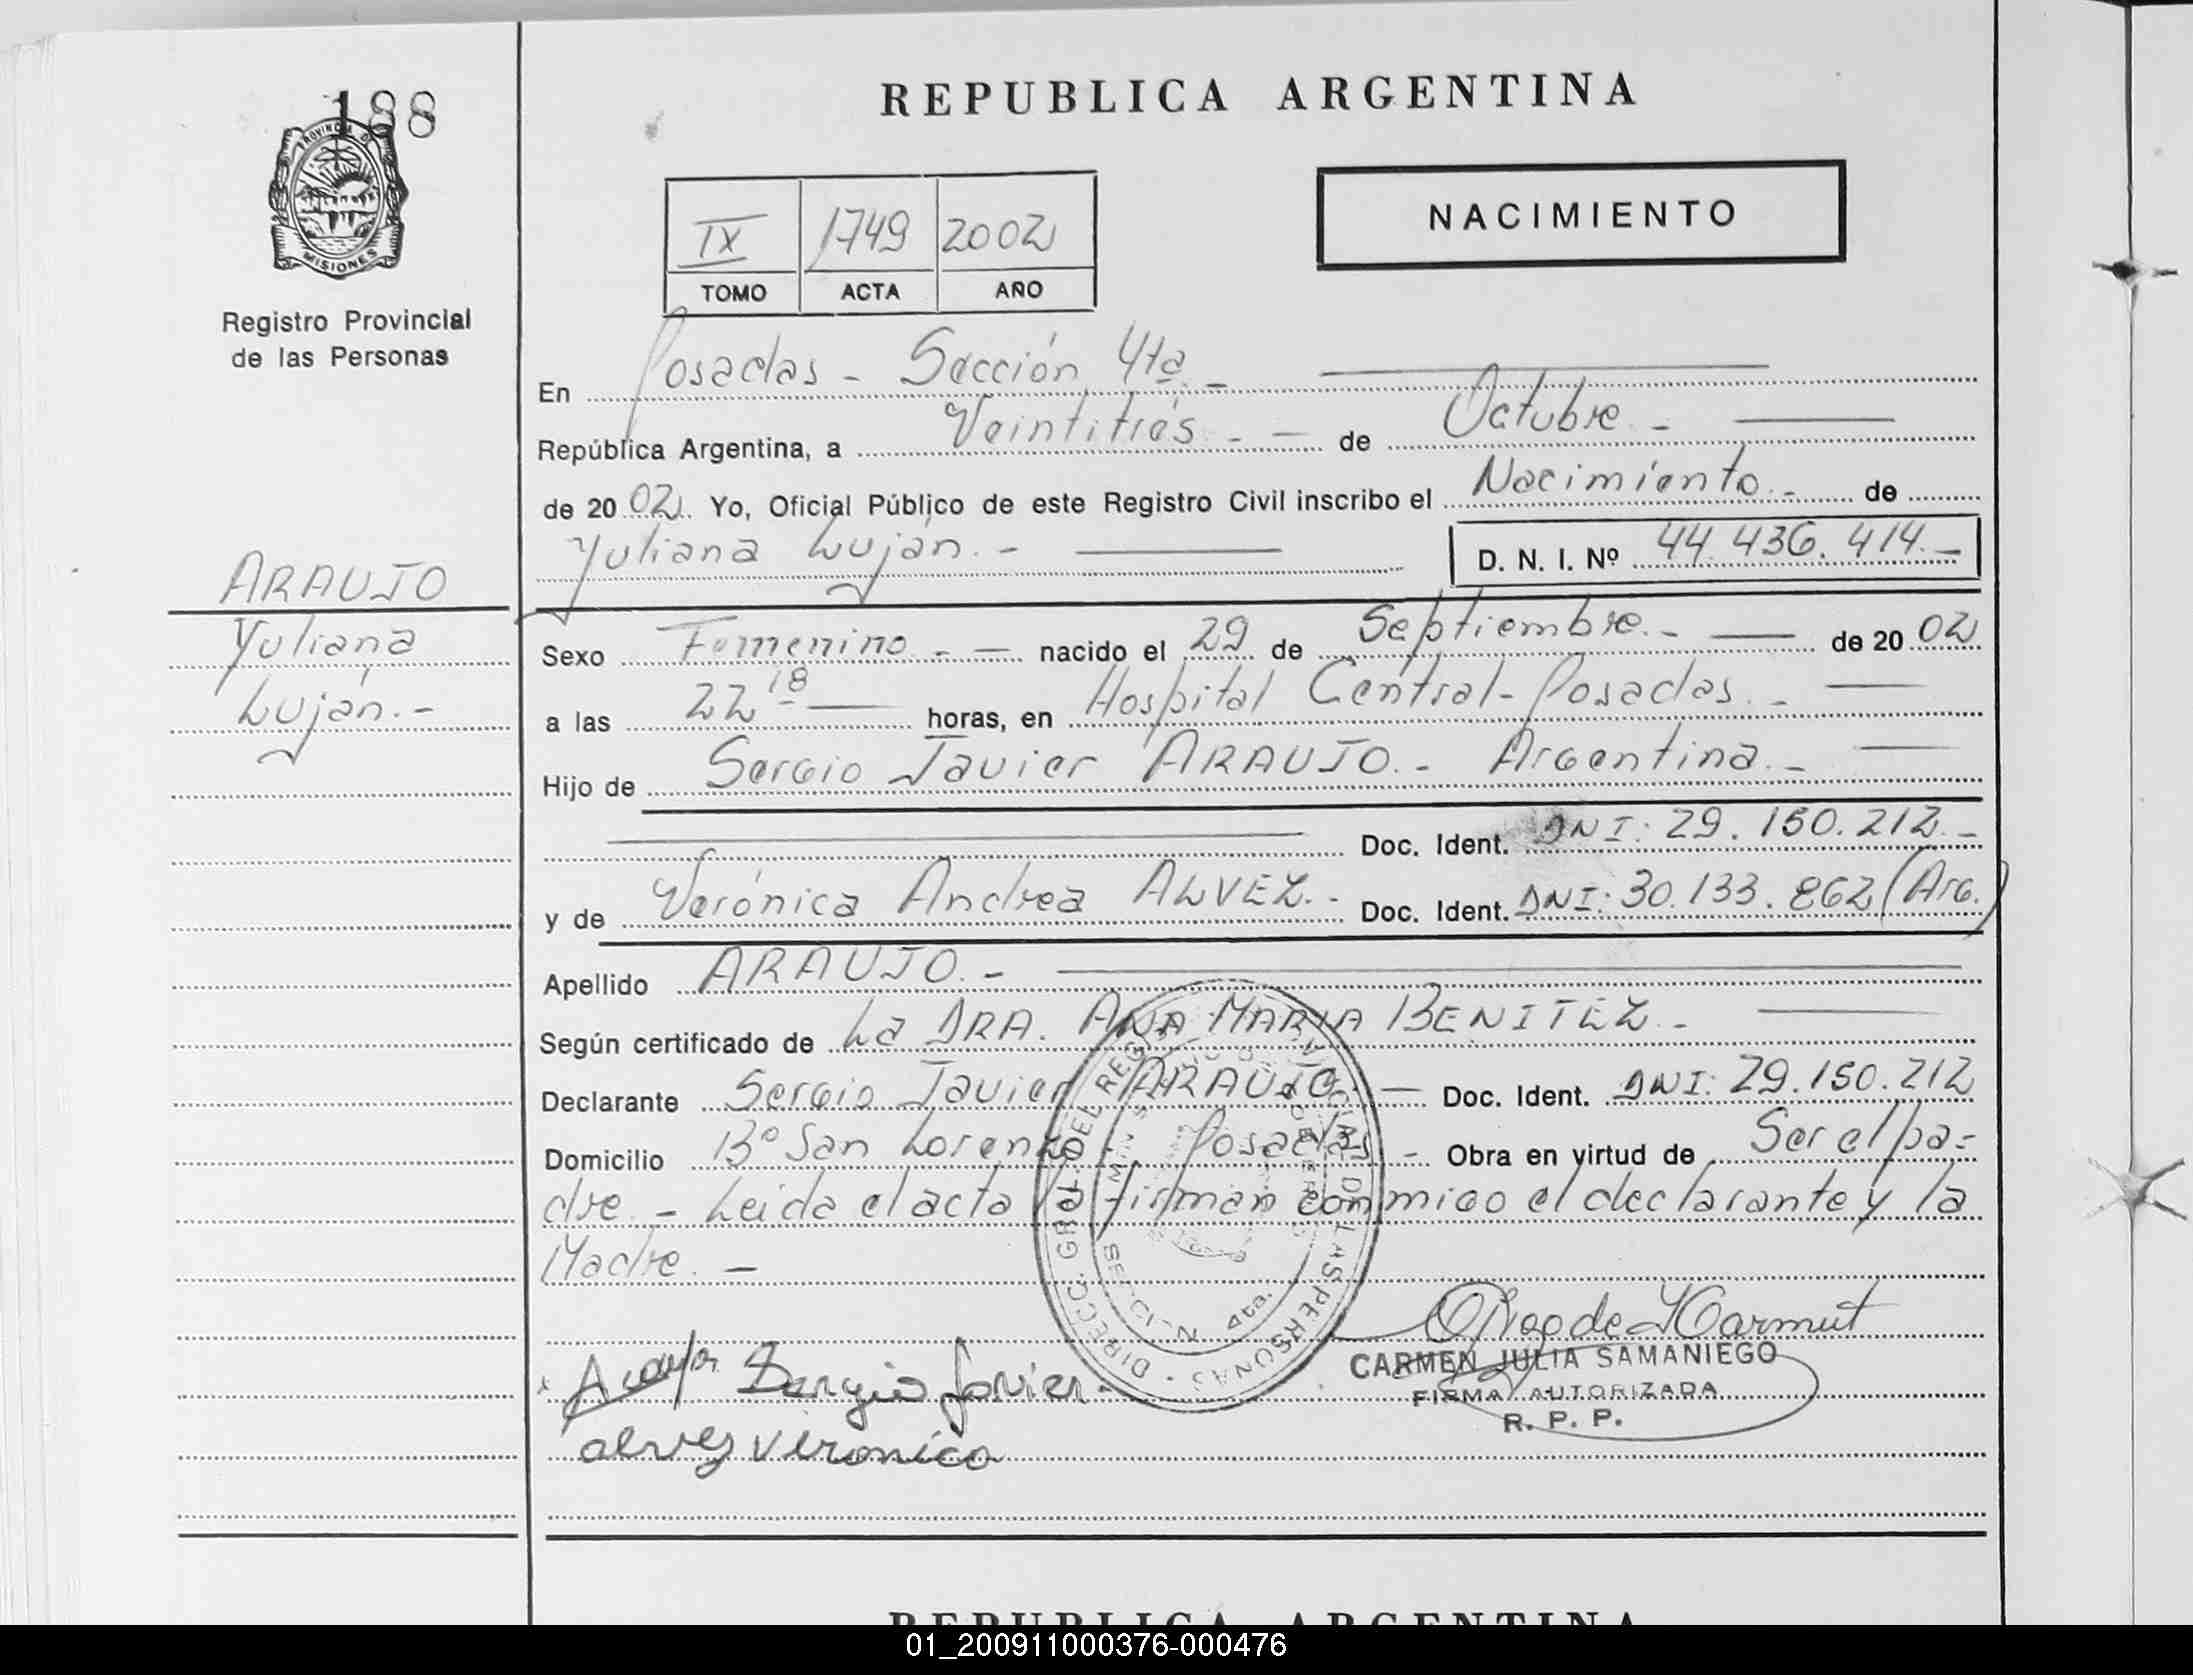 188
PROVINCIA DE
MISIONES
Registro Provincial
de las Personas
REPUBLICA ARGENTINA
IX 1749 2002
TOMO ACTA AÑO
NACIMIENTO
En Posadas - Sección 4ta. -
República Argentina, a Veintitrés - - de Octubre. -
de 2002. Yo, Oficial Público de este Registro Civil inscribo el Nacimiento. - de
Yuliana Luján. - D. N. I. Nº 44.436.414. -
ARAUJO
Yuliana
Luján. -
Sexo Femenino. - - nacido el 29 de Septiembre. - de 2002
a las 22 18 horas, en Hospital Central - Posadas. -
Hijo de Sergio Javier ARAUJO. - Argentina. -
Doc. Ident. DNI: 29.150.212. -
y de Verónica Andrea ALVEZ. - Doc. Ident. DNI: 30.133.862 (Arg.)
Apellido ARAUJO. -
Según certificado de La DRA. ANA MARIA BENITEZ. -
Declarante Sergio Javier ARAUJO. - Doc. Ident. DNI: 29.150.212
Domicilio Bº San Lorenzo, Posadas - Obra en virtud de Ser el pa-
dre. - Leida el acta la firman conmigo el declarante y la
Madre. -
DIRECC. GRAL. DEL REGISTRO PROVINCIAL DE LAS PERSONAS
4ta.
Araujo Sergio Javier
alvez Veronica
CARMEN JULIA SAMANIEGO
FIRMA AUTORIZADA
R. P. P.
REPUBLICA ARGENTINA
01_200911000376-000476